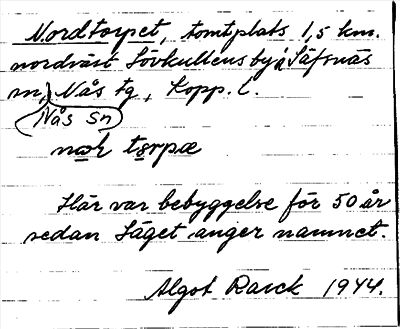 Nordtorpet, tomtplats 1,5 km.
nordväst Lövkullens by i Säfsnäs
m, Nås tg, Kopp. l.
Nås Sn
Här var bebyggelse för 50 år
sedan Läget anger namnet.
Algot Rasck 1944.